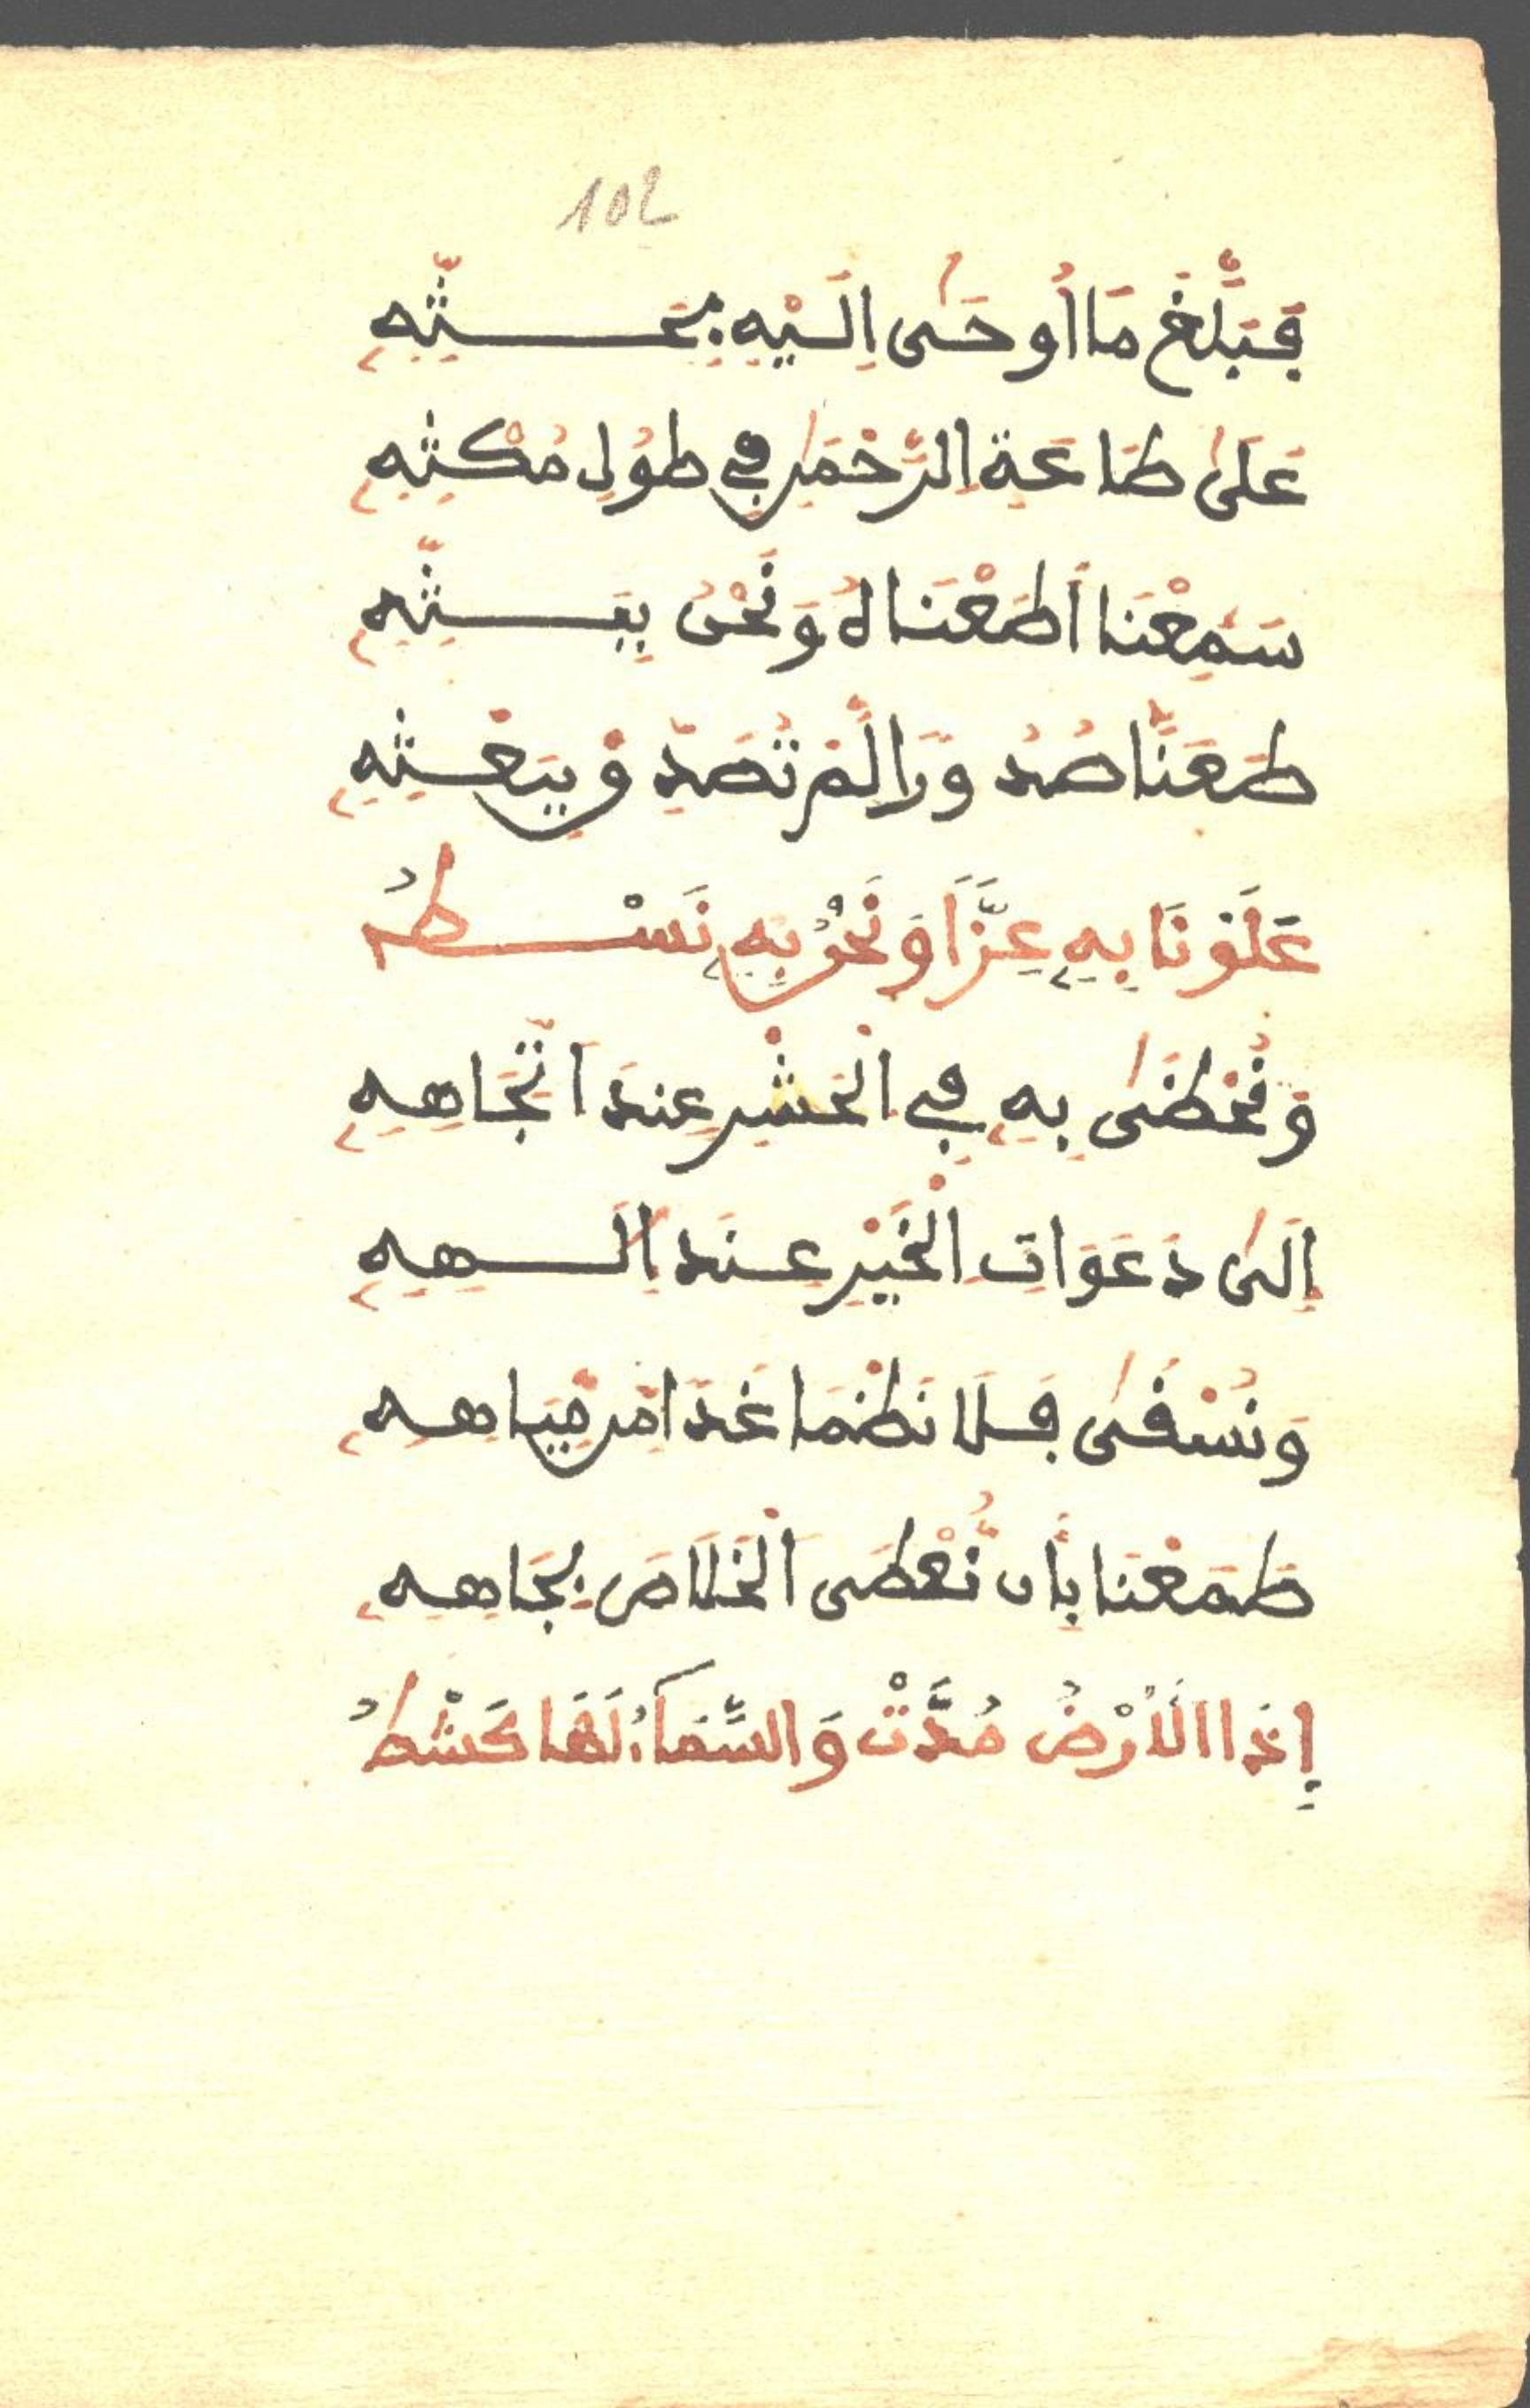 102
فَبَلَّغَ مَا أُوحَىٰ إِلَيْهِ بِحَثِّهِ
عَلَىٰ طَاعَةِ الرَّحْمَٰنِ فِي طُولِ مُكْثِهِ
سَمِعْنَا أَطَعْنَاهُ وَنَحْنُ بِبَثِّهِ
طَمَعَنَّا صُدُورًا لَمْ تَصَدَّ وَبِبَعْثِهِ
عَلَوْنَا بِهِ عِزًّا وَنَحْنُ بِهِ نَسْطُ
وَنُحْظَىٰ بِهِ فِي الْحَشْرِ عِندَ اتِّجَاهِهِ
إِلَىٰ دَعَوَاتِ الْخَيْرِ عِندَ إِلَٰهِهِ
وَنُسْقَىٰ فَلَا نَظْمَا غَدًا مِن مِّيَاهِهِ
طَمَعْنَا بِأَن نُّعْطَى الْخَلَاصَ بِجَاهِهِ
إِذَا الْأَرْضُ مُدَّتْ وَالسَّمَاءُ لَهَا كَشْطُ